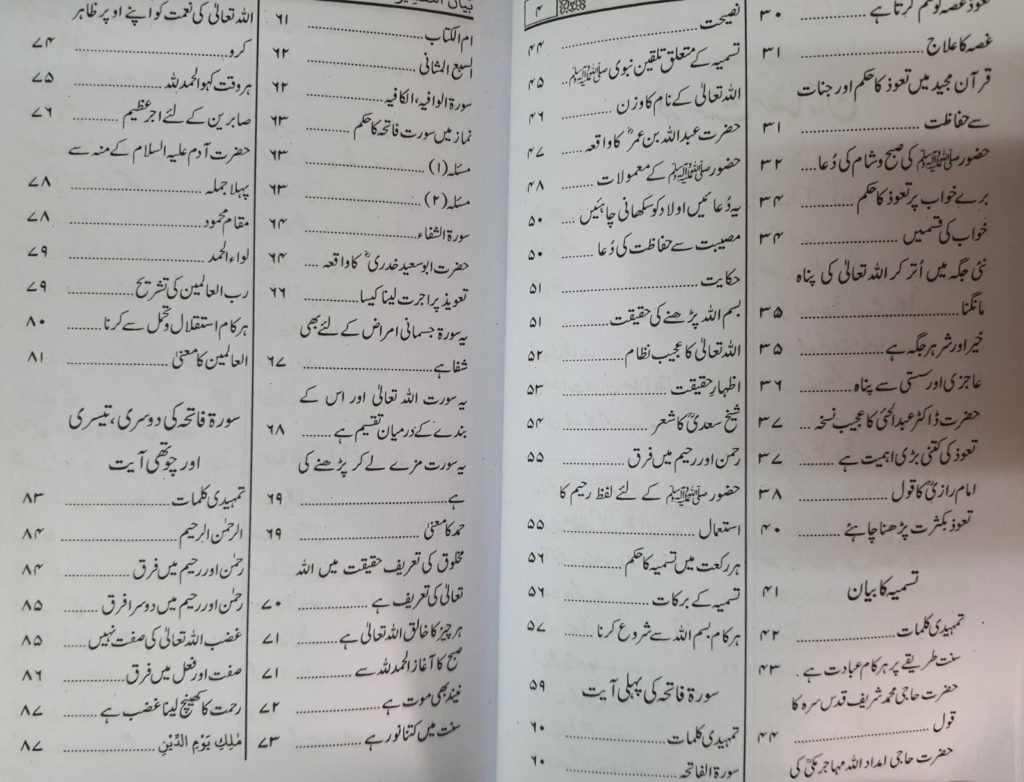 ۴
تعوذ غصہ کو ختم کرتا ہے ۳۰
غصہ کا علاج ۳۱
قرآن مجید میں تعوذ کا حکم اور جنات
سے حفاظت ۳۱
حضور ﷺ کی صبح و شام کی دُعا ۳۲
برے خواب پر تعوذ کا حکم ۳۴
خواب کی قسمیں ۳۴
نئی جگہ میں اُتر کر اللہ تعالیٰ کی پناہ
مانگنا ۳۵
خیر اور شر ہر جگہ ہے ۳۵
عاجزی اور سستی سے پناہ ۳۶
حضرت ڈاکٹر عبدالحئیؒ کا عجیب نسخہ ۳۷
تعوذ کی کتنی بڑی اہمیت ہے ۳۷
امام رازیؒ کا قول ۳۸
تعوذ بکثرت پڑھنا چاہئے ۴۰
تسمیہ کا بیان ۴۱
تمہیدی کلمات ۴۲
سنت طریقے پر ہر کام عبادت ہے ۴۳
حضرت حاجی محمد شریف قدس سرہ کا
قول ۴۴
حضرت حاجی امداد اللہ مہاجر مکیؒ کی
نصیحت ۴۴
تسمیہ کے متعلق تلقین نبوی ﷺ ۴۵
اللہ تعالیٰ کے نام کا وزن ۴۶
حضرت عبداللہ بن عمرؓ کا واقعہ ۴۷
حضور ﷺ کے معمولات ۴۸
یہ دُعائیں اولاد کو سکھانی چاہئیں ۵۰
مصیبت سے حفاظت کی دُعا ۵۰
حکایت ۵۱
بسم اللہ پڑھنے کی حقیقت ۵۱
اللہ تعالیٰ کا عجیب نظام ۵۲
اظہارِ حقیقت ۵۳
شیخ سعدیؒ کا شعر ۵۴
رحمن اور رحیم میں فرق ۵۵
حضور ﷺ کے لئے لفظ رحیم کا
استعمال ۵۵
ہر رکعت میں تسمیہ کا حکم ۵۶
تسمیہ کے برکات ۵۶
ہر کام بسم اللہ سے شروع کرنا ۵۷
سورۃ فاتحہ کی پہلی آیت ۵۹
تمہیدی کلمات ۶۰
سورۃ الفاتحہ ۶۰
ام الکتاب ۶۱
السبع الثانی ۶۲
سورۃ الوافیہ، الکافیہ ۶۲
نماز میں سورت فاتحہ کا حکم ۶۳
مسئلہ (۱) ۶۳
مسئلہ (۲) ۶۳
سورۃ الشفاء ۶۴
حضرت ابو سعید خدریؓ کا واقعہ ۶۴
تعویذ پر اجرت لینا کیسا ۶۶
یہ سورۃ جسمانی امراض کے لئے بھی
شفا ہے ۶۷
یہ سورت اللہ تعالیٰ اور اس کے
بندے کے درمیان تقسیم ہے ۶۸
یہ سورت مزے لے کر پڑھنے کی
ہے ۶۹
حمد کا معنیٰ ۶۹
مخلوق کی تعریف حقیقت میں اللہ
تعالیٰ کی تعریف ہے ۷۰
ہر چیز کا خالق اللہ تعالیٰ ہے ۷۱
صبح کا آغاز الحمد للہ سے ۷۱
نیند بھی موت ہے ۷۲
سنت میں کتنا نور ہے ۷۳
اللہ تعالیٰ کی نعمت کو اپنے اوپر ظاہر
کرو ۷۴
ہر وقت کہو الحمد للہ ۷۵
صابرین کے لئے اجر عظیم ۷۶
حضرت آدم علیہ السلام کے منہ سے
پہلا جملہ ۷۸
مقام محمود ۷۸
لواء الحمد ۷۹
رب العالمین کی تشریح ۷۹
ہر کام استقلال و تحمل سے کرنا ۸۰
العالمین کا معنیٰ ۸۱
سورۃ فاتحہ کی دوسری، تیسری
اور چوتھی آیت
تمہیدی کلمات ۸۳
الرحمٰن الرحیم ۸۴
رحمٰن اور رحیم میں فرق ۸۴
رحمٰن اور رحیم میں دوسرا فرق ۸۵
غضب اللہ تعالیٰ کی صفت نہیں ۸۵
صفت اور فعل میں فرق ۸۶
رحمت کا کھینچ لینا غضب ہے ۸۷
مٰلِكِ يَوْمِ الدِّيْنِ ۸۷